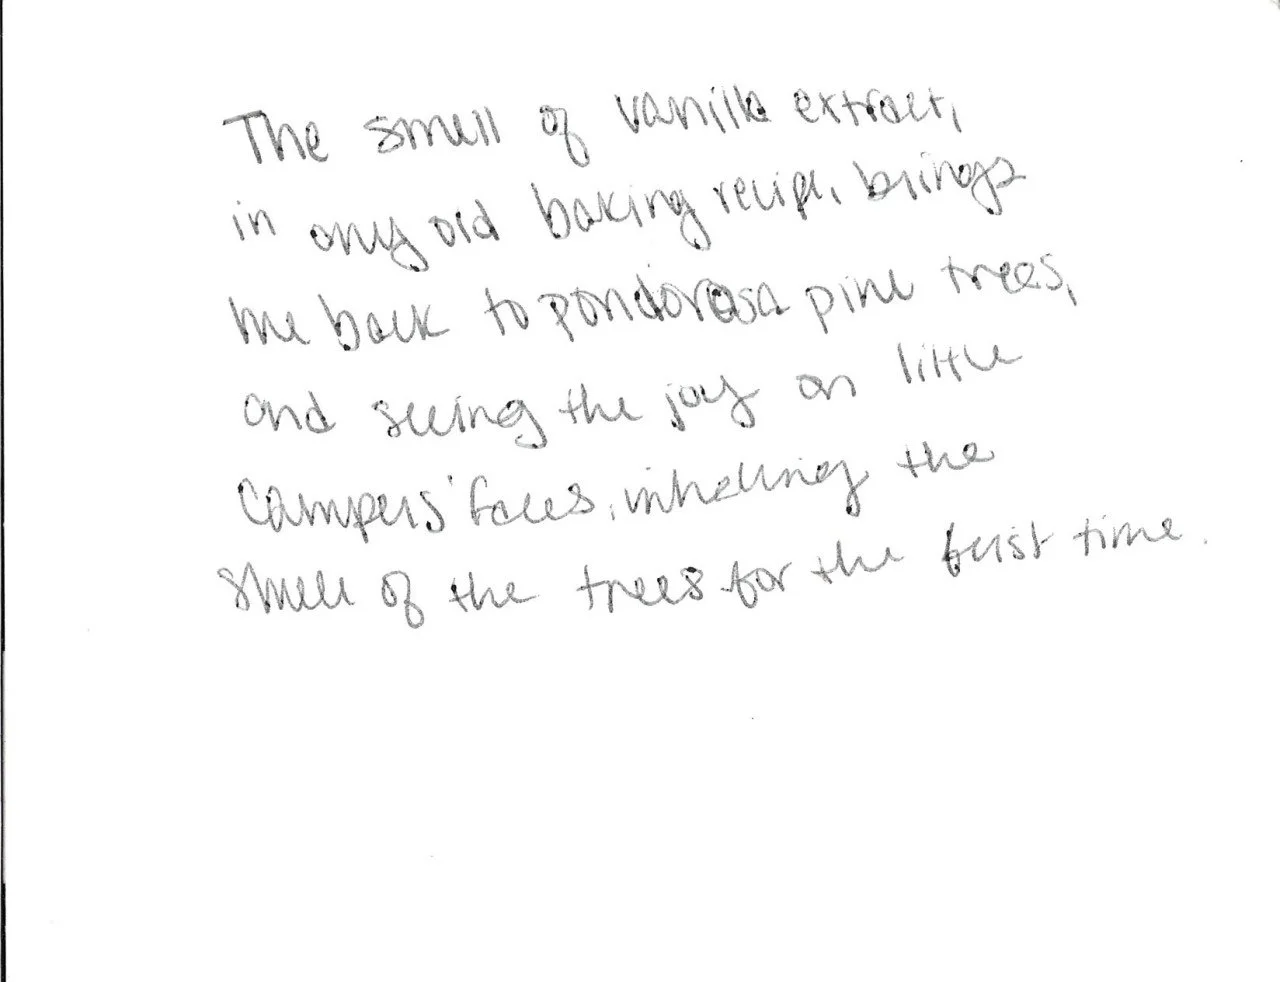 The smell of vanilla extract,
in any old baking recipe, brings
me back to pondorosa pine trees,
and seeing the joy on little
campers' faces, inhaling the
smell of the trees for the first time.